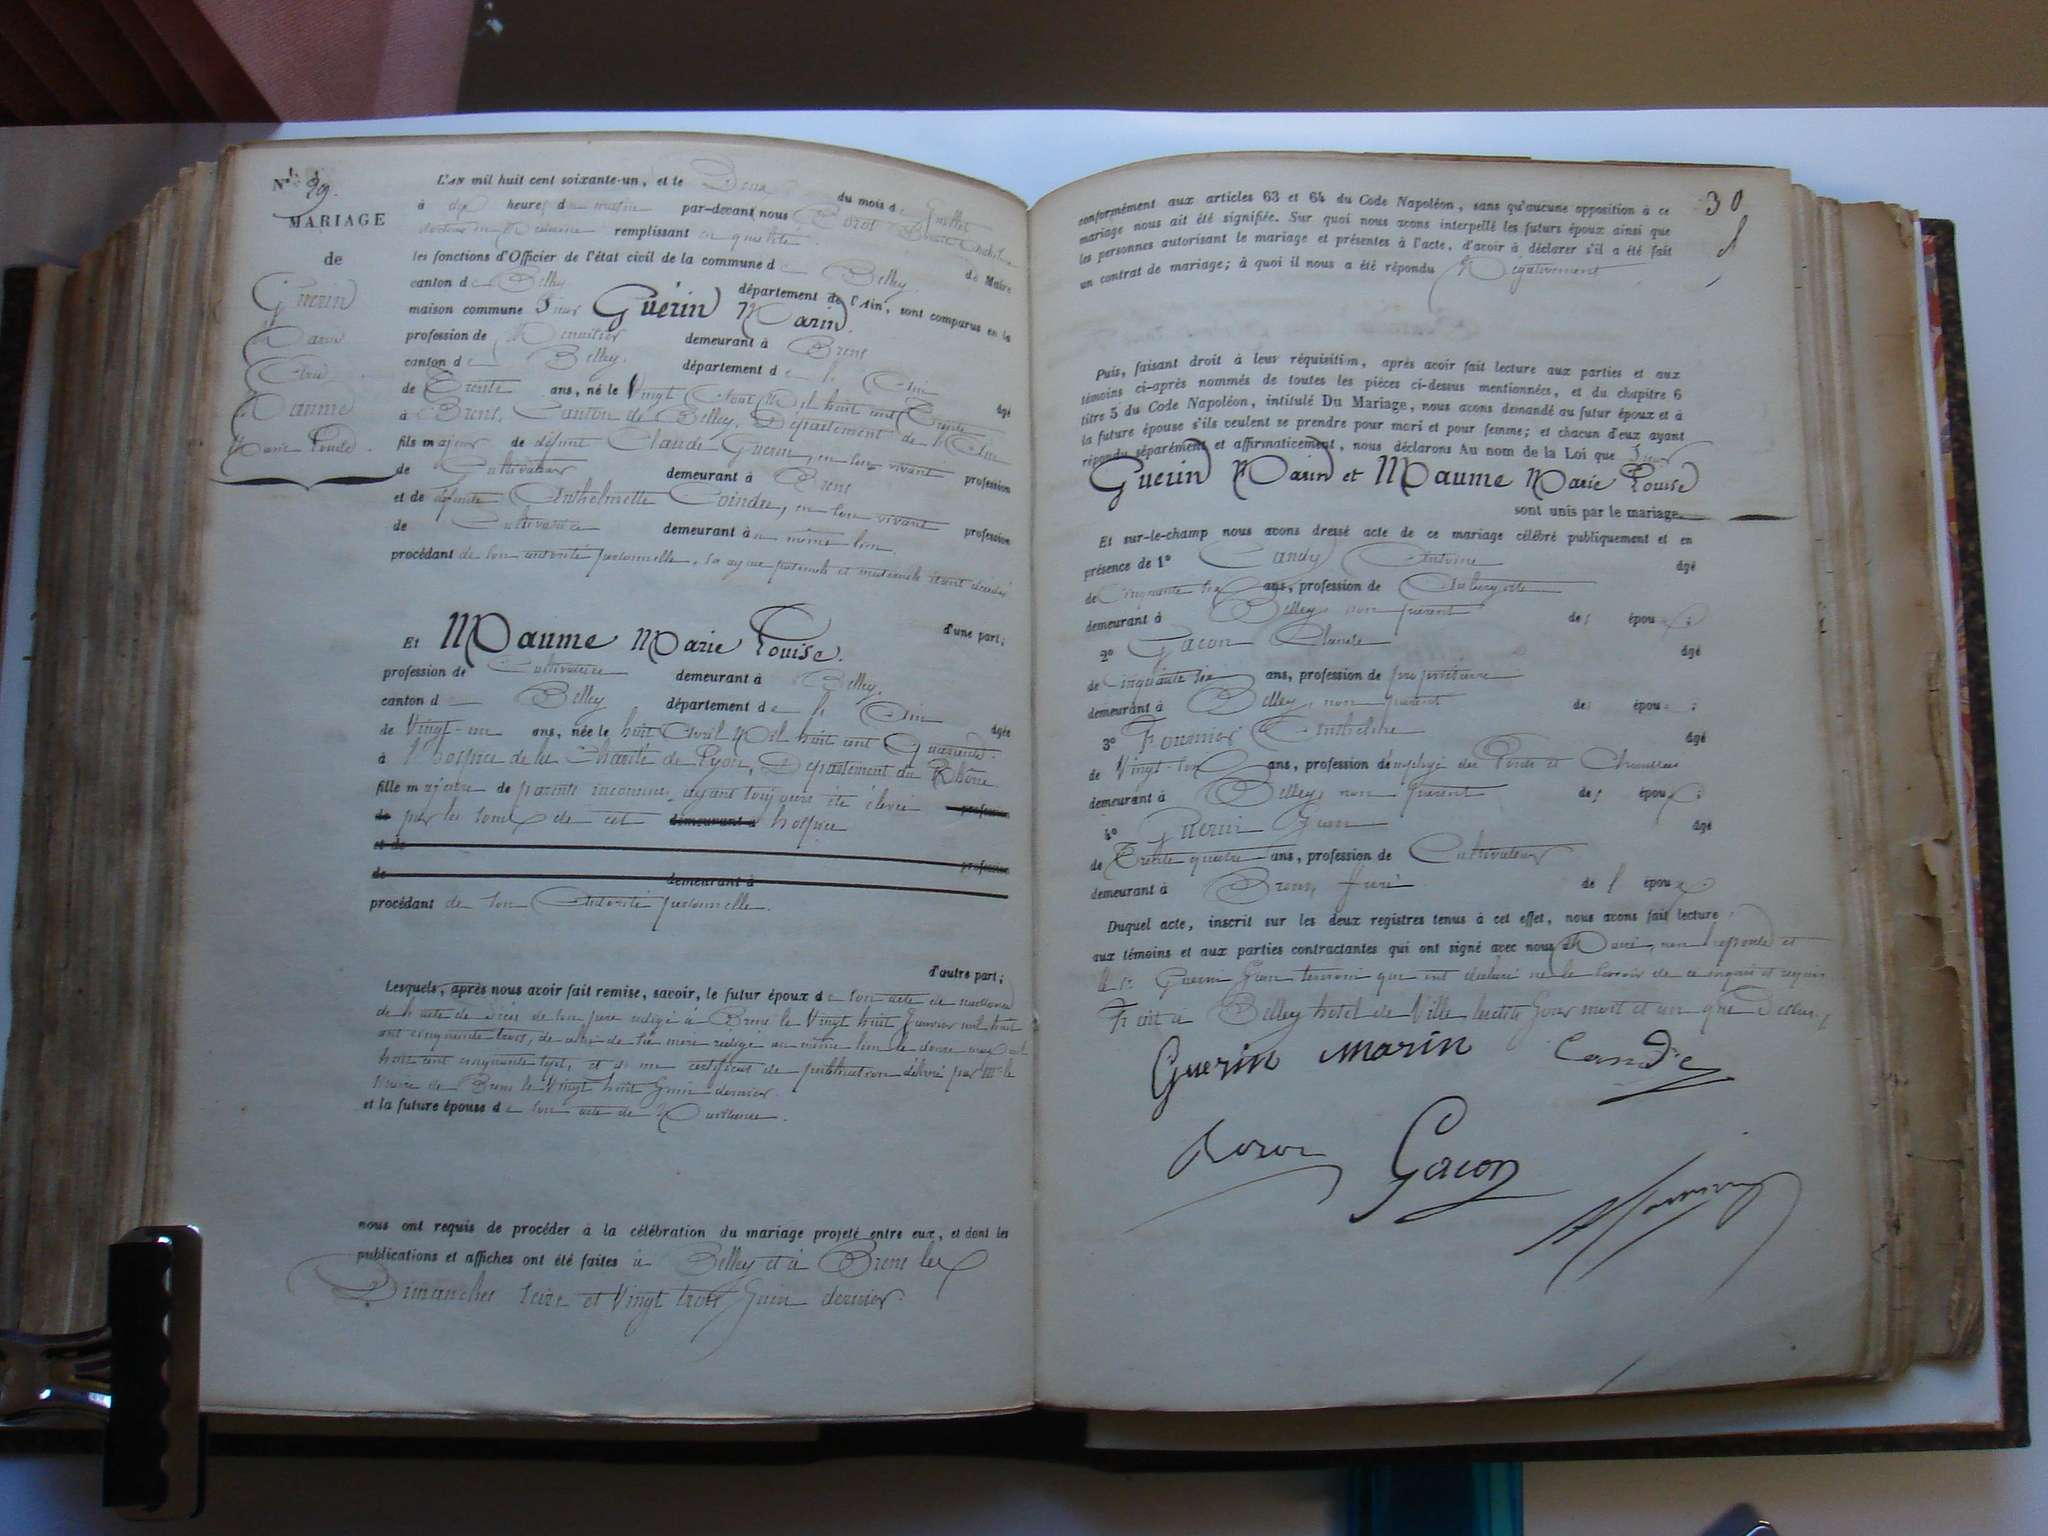 N° 29.
MARIAGE
de
Guérin
Marin
Et
Maume
Marie Louise.
L'AN mil huit cent soixante-un, et le Deux du mois de Juillet
à dix heures du matin par-devant nous
docteur en Médecine remplissant en qualité de Maire
les fonctions d'Officier de l'état civil de la commune de Belley
canton de Belley département de l'Ain, sont comparus en la
maison commune Sieur Guérin Marin.
profession de Menuisier demeurant à Brens
canton de Belley. département de l'Ain âgé
de Trente ans, né le Vingt Août Mil huit cent Trente
à Brens, Canton de Belley, Département de l'Ain
fils majeur de défunt Claude Guerin, en son vivant profession
de Cultivateur demeurant à Brens
et de défunte Anthelmette Coindre, en son vivant profession
de Cultivatrice demeurant au même lieu.
procédant de son autorité personnelle, ses ayeux paternels et maternels étant décédés
d'une part;
Et Maume Marie Louise.
profession de Cultivatrice demeurant à Belley.
canton de Belley département de l'Ain âgée
de Vingt-un ans, née le huit Avril Mil huit cent Quarante.
à l'hospice de la Charité de Lyon, Département du Rhône
fille majeure de parents inconnus, ayant toujours été élevée profession
de par les soins de cet demeurant à hospice
et de profession
de demeurant à
procédant de son Autorité personnelle.
d'autre part;
Lesquels, après nous avoir fait remise, savoir, le futur époux de son acte de naissance
de l'acte de décès de son père rédigé à Brens le Vingt huit Janvier mil huit
cent cinquante trois, de celui de sa mère rédigé au même lieu le douze mars mil
huit cent cinquante sept, et d'un certificat de publication délivré par Mr le
Maire de Brens le Vingt huit Juin dernier
et la future épouse de son acte de Naissance.
nous ont requis de procéder à la célébration du mariage projeté entre eux, et dont les
publications et affiches ont été faites à Belley et à Brens les
Dimanches Seize et Vingt trois Juin dernier.
30
conformément aux articles 63 et 64 du Code Napoléon, sans qu'aucune opposition à ce
mariage nous ait été signifiée. Sur quoi nous avons interpellé les futurs époux ainsi que
les personnes autorisant le mariage et présentes à l'acte, d'avoir à déclarer s'il a été fait
un contrat de mariage; à quoi il nous a été répondu Négativement
Puis, faisant droit à leur réquisition, après avoir fait lecture aux parties et aux
témoins ci-après nommés de toutes les pièces ci-dessus mentionnées, et du chapitre 6
titre 5 du Code Napoléon, intitulé Du Mariage, nous avons demandé au futur époux et à
la future épouse s'ils veulent se prendre pour mari et pour femme; et chacun d'eux ayant
répondu séparément et affirmativement, nous déclarons Au nom de la Loi que Sieur
Guerin Marin et Maume Marie Louise
sont unis par le mariage.
Et sur-le-champ nous avons dressé acte de ce mariage célébré publiquement et en
présence de 1° Candy Antoine âgé
de Cinquante six ans, profession de Aubergiste
demeurant à Belley, non parent de l époux;
2° Gacon Claude âgé
de Cinquante six ans, profession de propriétaire
demeurant à Belley, non parent de époux;
3° Fournier Anthelme âgé
de Vingt-six ans, profession d'employé des Ponts et Chaussées
demeurant à Belley, non parent de l époux;
4° Guerin Jean âgé
de Trente quatre ans, profession de Cultivateur
demeurant à Brens, frère de l époux.
Duquel acte, inscrit sur les deux registres tenus à cet effet, nous avons fait lecture
aux témoins et aux parties contractantes qui ont signé avec nous Maire, non l'épouse et
le Sr Guerin Jean temoin qui ont déclaré ne le savoir de ce enquis et requis
Fait à Belley hôtel de Ville lesdits Jour mois et an que Dessus,
Guerin marin Candy
Gacon